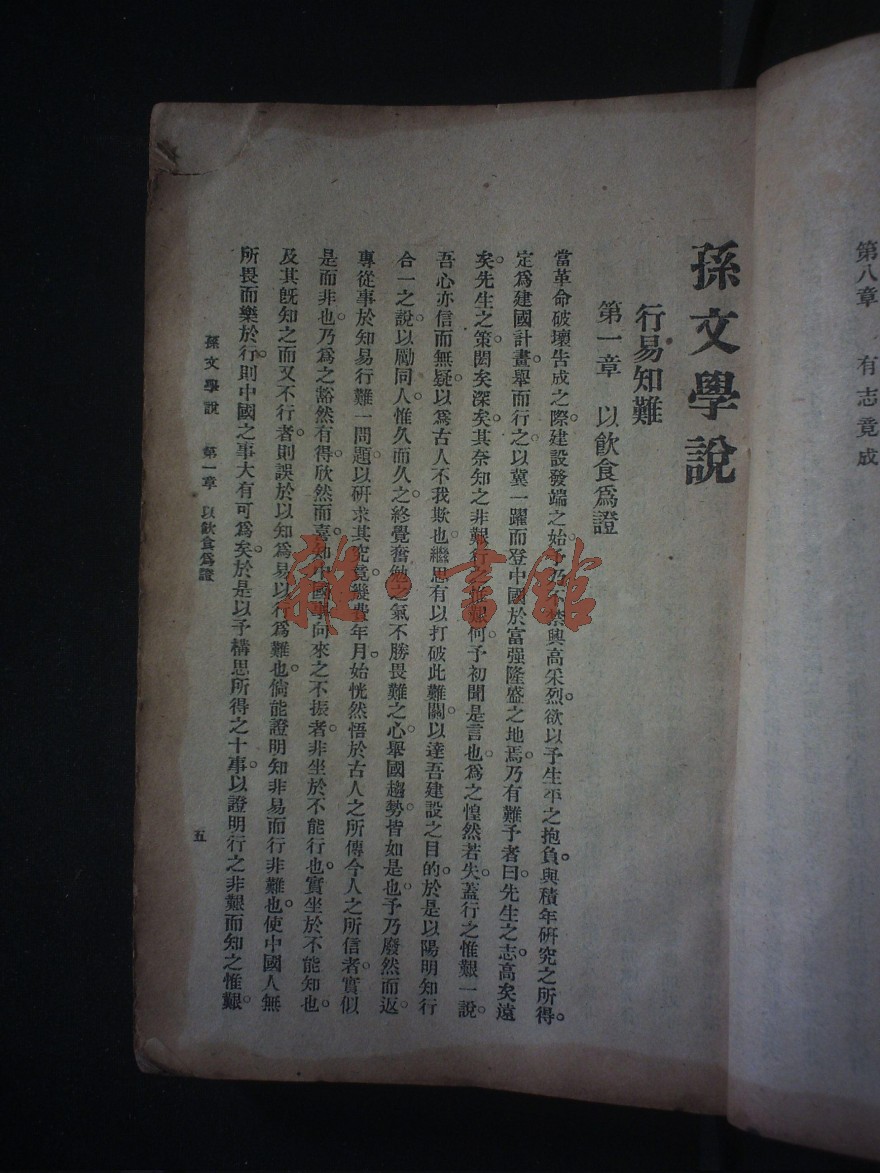 第八章　有志竟成
孫文學說
行易知難
第一章　以飲食爲證
當革命破壞告成之際。建設發端之始。予乃不禁興高采烈。欲以予生平之抱負。與積年研究之所得。
定爲建國計畫。舉而行之。以冀一躍而登中國於富强隆盛之地焉。乃有難予者曰。先生之志高矣遠
矣。先生之策閎矣深矣。其奈知之非艱行之惟艱何。予初聞是言也。爲之惶然若失。蓋行之惟艱一說。
吾心亦信而無疑。以爲古人不我欺也。繼思有以打破此難關。以達吾建設之目的。於是以陽明知行
合一之說。以勵同人。惟久而久之。終覺奮勉之氣。不勝畏難之心。舉國趨勢皆如是也。予乃廢然而返。
專從事於知易行難一問題。以研求其究竟。幾費年月。始恍然悟於古人之所傳今人之所信者。實似
是而非也。乃爲之豁然有得。欣然而喜。知中國事向來之不振者。非坐於不能行也。實坐於不能知也。
及其旣知之而又不行者。則誤於以知爲易以行爲難也。倘能證明知非易而行非難也。使中國人無
所畏而樂於行。則中國之事大有可爲矣。於是以予構思所得之十事。以證明行之非艱而知之惟艱。
孫文學說　第一章　以飲食爲證
五
雜·書館